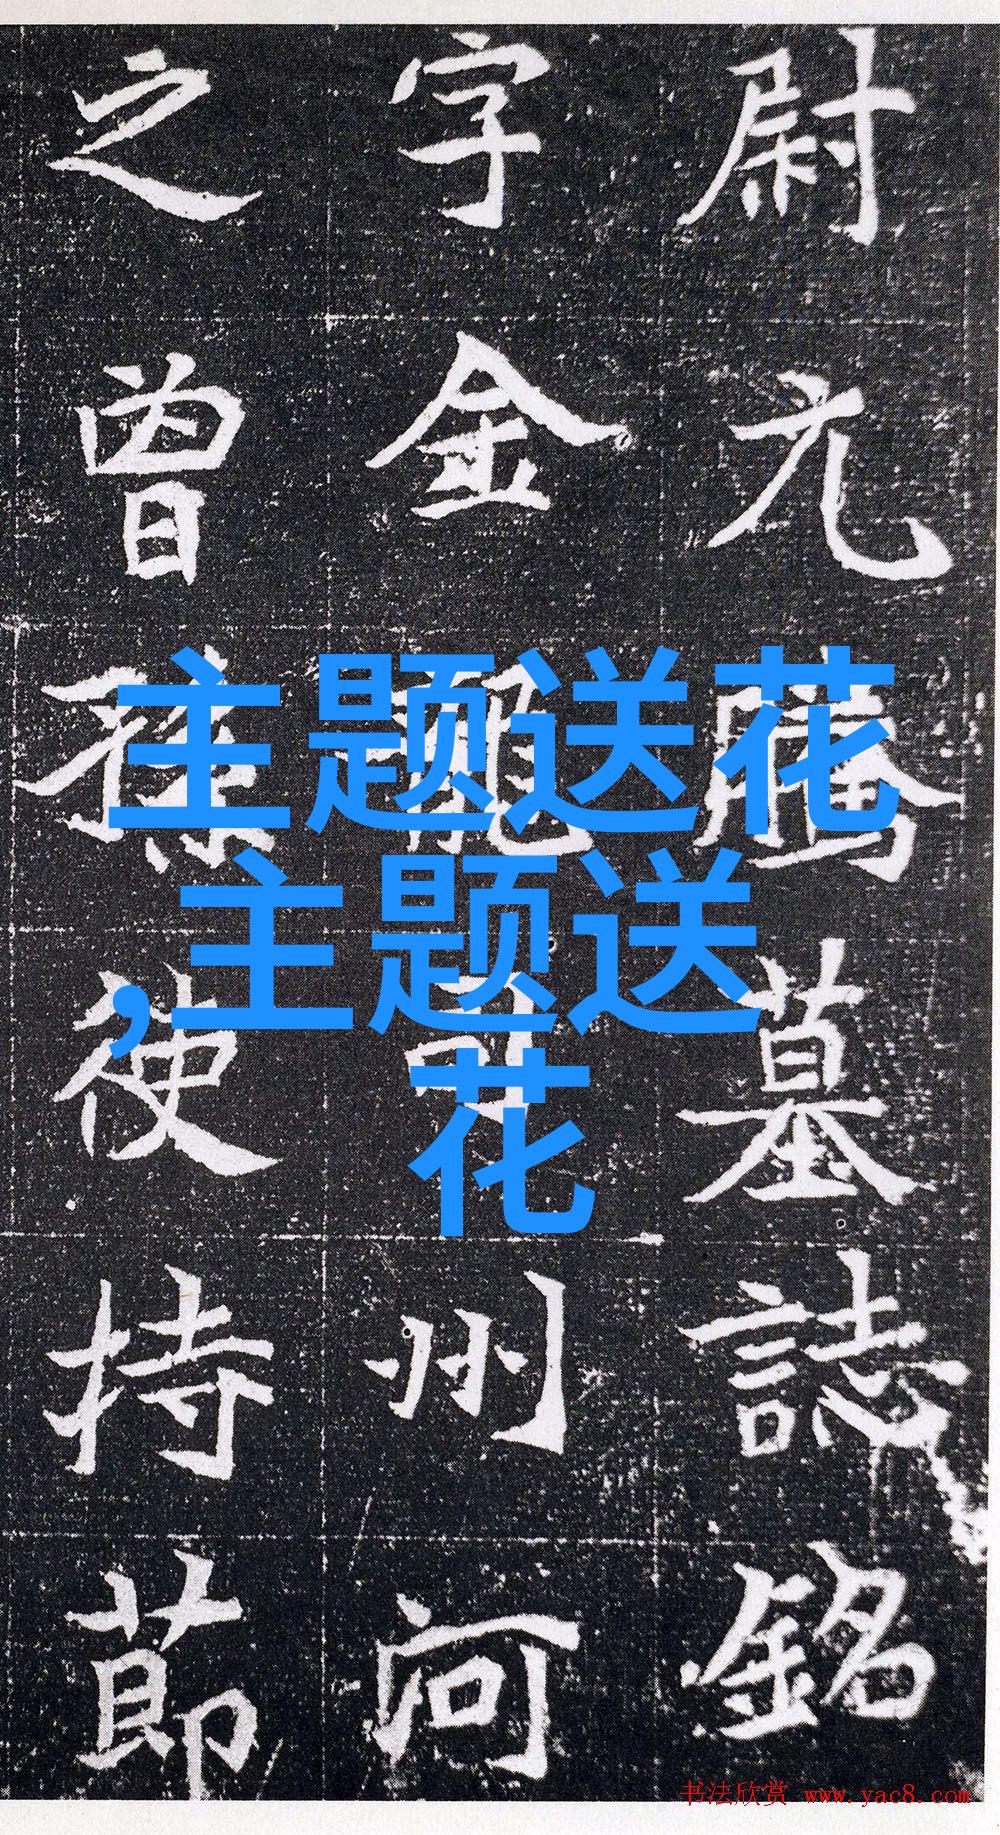 尉元騰墓誌銘
字金龍司州河
之曾孫使持節
主题送花
,主题送
花
书法欣赏 www.yac8.com